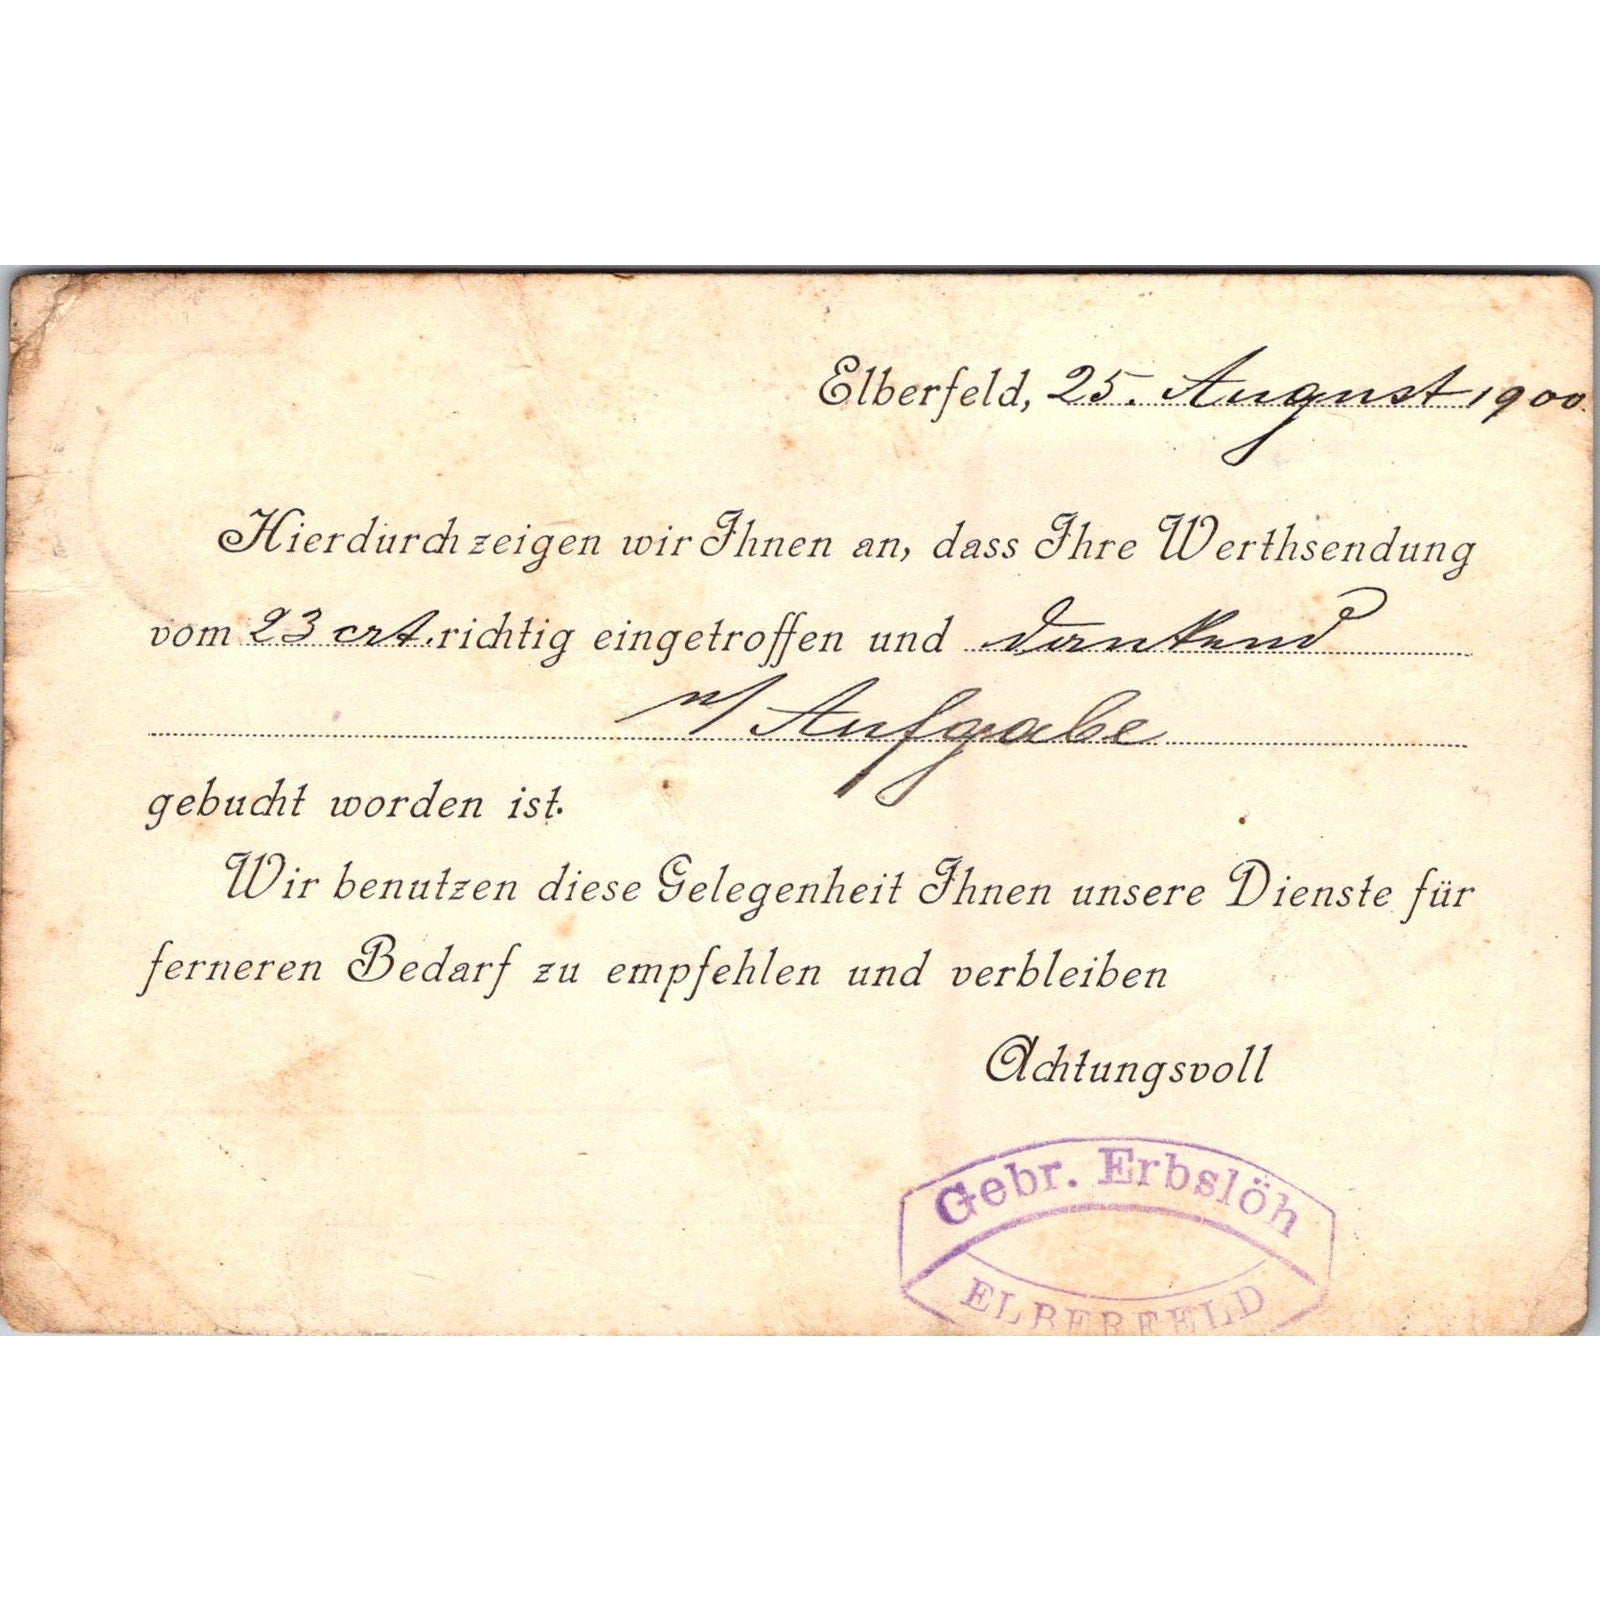 Elberfeld, 25. August 1900.
Hierdurch zeigen wir Ihnen an, dass Ihre Werthsendung
vom 23 crt. richtig eingetroffen und dankend
n/ Aufgabe
gebucht worden ist.
Wir benutzen diese Gelegenheit Ihnen unsere Dienste für
ferneren Bedarf zu empfehlen und verbleiben
Achtungsvoll
Gebr. Erbslöh
ELBERFELD